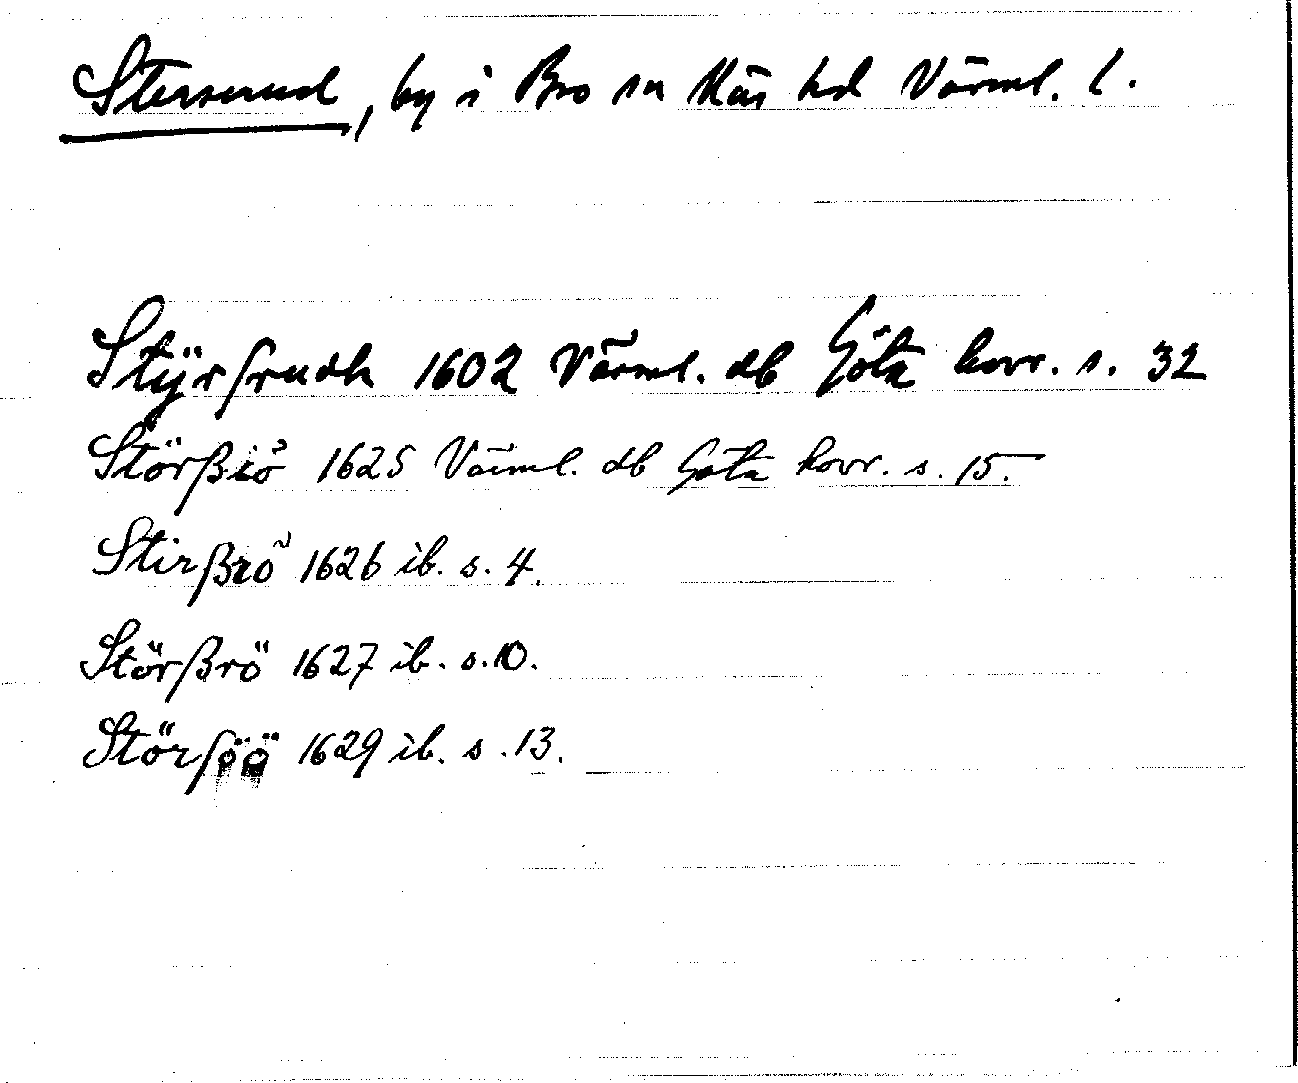 Sterserud, by i Bro sn Näs hd Värml. l.
Stÿrsrudh 1602 Värml. db Göta hovr. s. 32
Störßiö 1625 Värml. db Göta hovr. s. 15.
Stirßrö 1626 ib. s. 4.
Störßrö 1627 ib. s. 10.
Störsöö 1629 ib. s. 13.